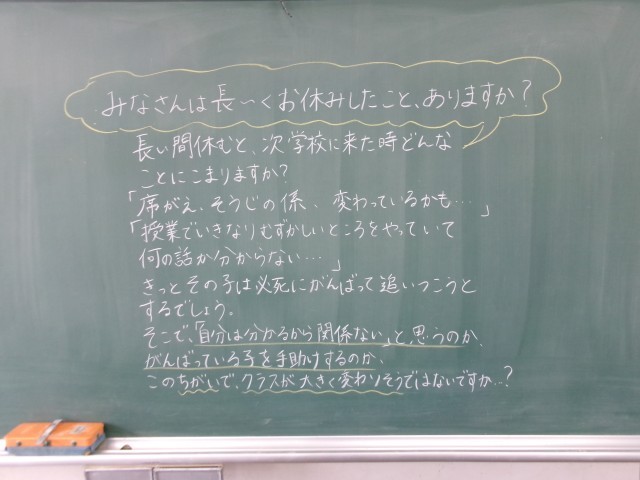 みなさんは長〜くお休みしたこと、ありますか？
長い間休むと、次学校に来た時どんな
ことにこまりますか？
「席がえ、そうじの係、変わっているかも…」
「授業でいきなりむずかしいところをやっていて
何の話か分からない…」
きっとその子は必死にがんばって追いつこうと
するでしょう。
そこで、「自分は分かるから関係ない」と思うのか、
がんばっている子を手助けするのか、
このちがいで、クラスが大きく変わりそうではないですか…？